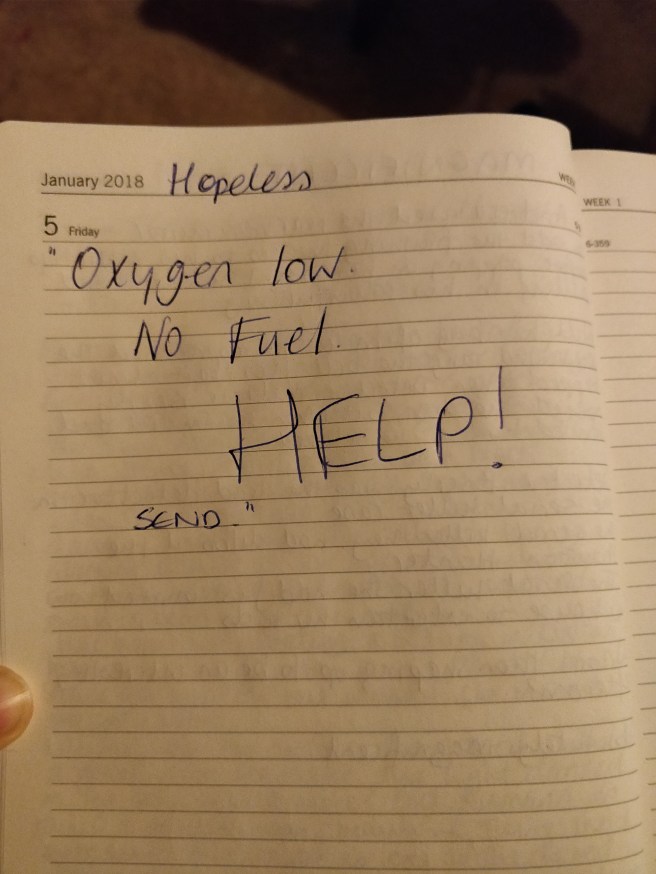 January 2018 Hopeless
WEEK 1
5 Friday
6-359
"Oxygen low.
No Fuel.
HELP!
SEND."